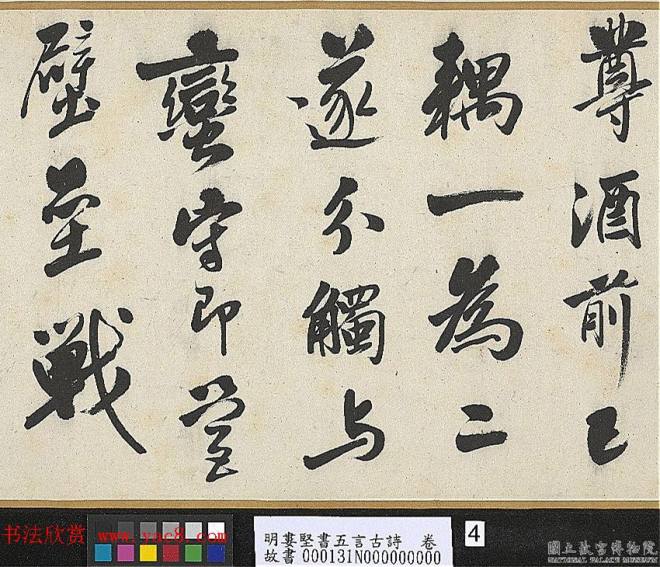 尊酒前已
耦一為二
遂分觸与
蠻守即營
壁壘戰
书法欣赏 www.yac8.com
明婁堅書五言古詩 卷
故書 000131N000000000
4
國立故宮博物院
NATIONAL PALACE MUSEUM